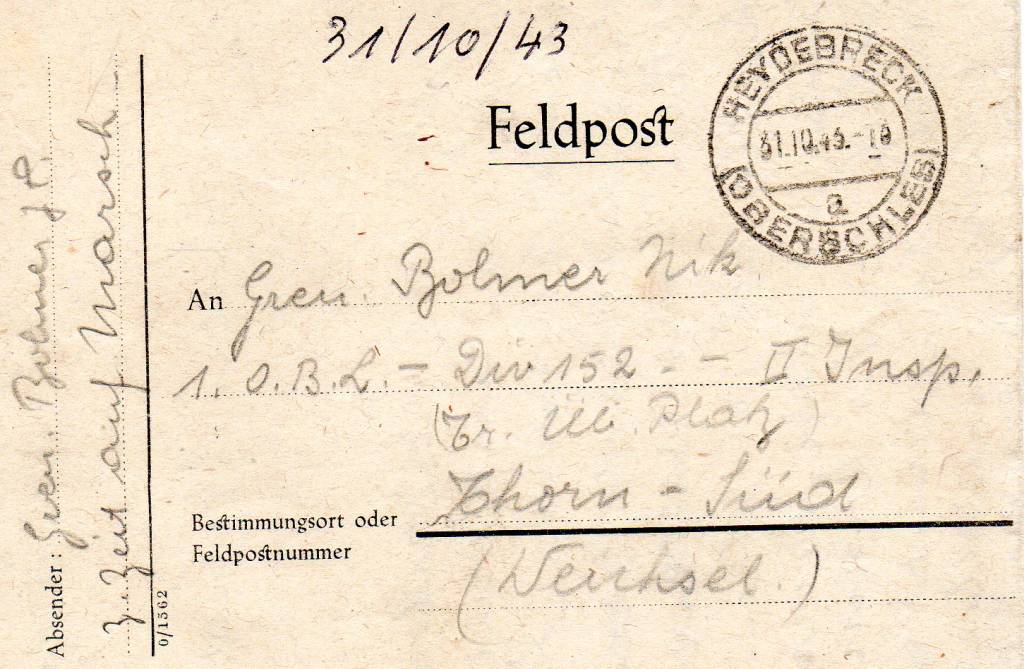 31/10/43
Feldpost
HEYDEBRECK
31.10.43.-10
a
(OBERSCHLES)
An Gren. Bolmer Nik
1. O.B.L. - Div 152. - II Insp.
(Tr. Üb. Platz)
Thorn - Süd
Bestimmungsort oder
Feldpostnummer
(Weichsel.)
Absender: Gren. Bolmer J P.
z. Zeit auf Marsch
0/1562